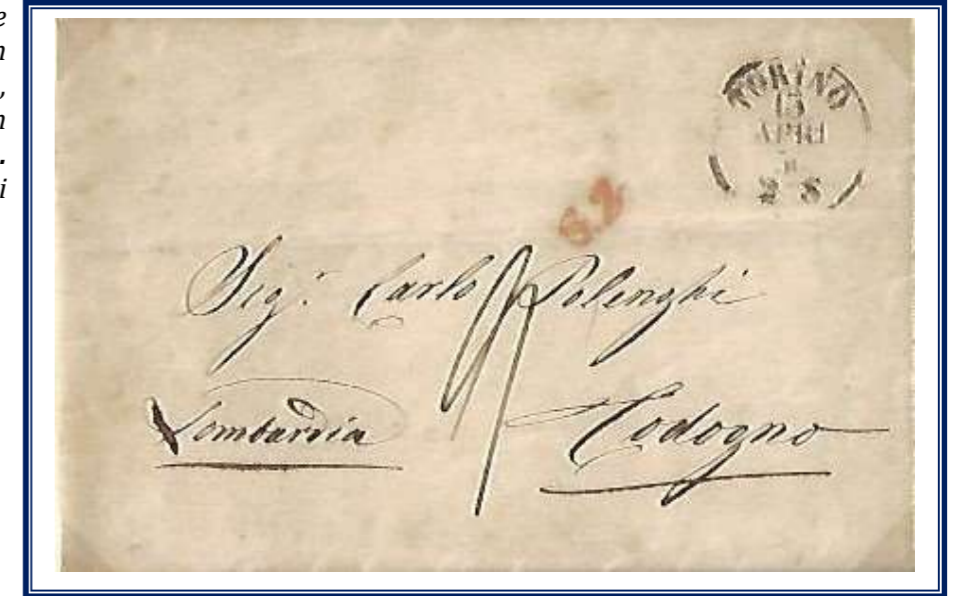 e
n
,
n
.
i
TORINO
APRI
S.2
Sig.r Carlo Polenghi
Lombardia
Codogno